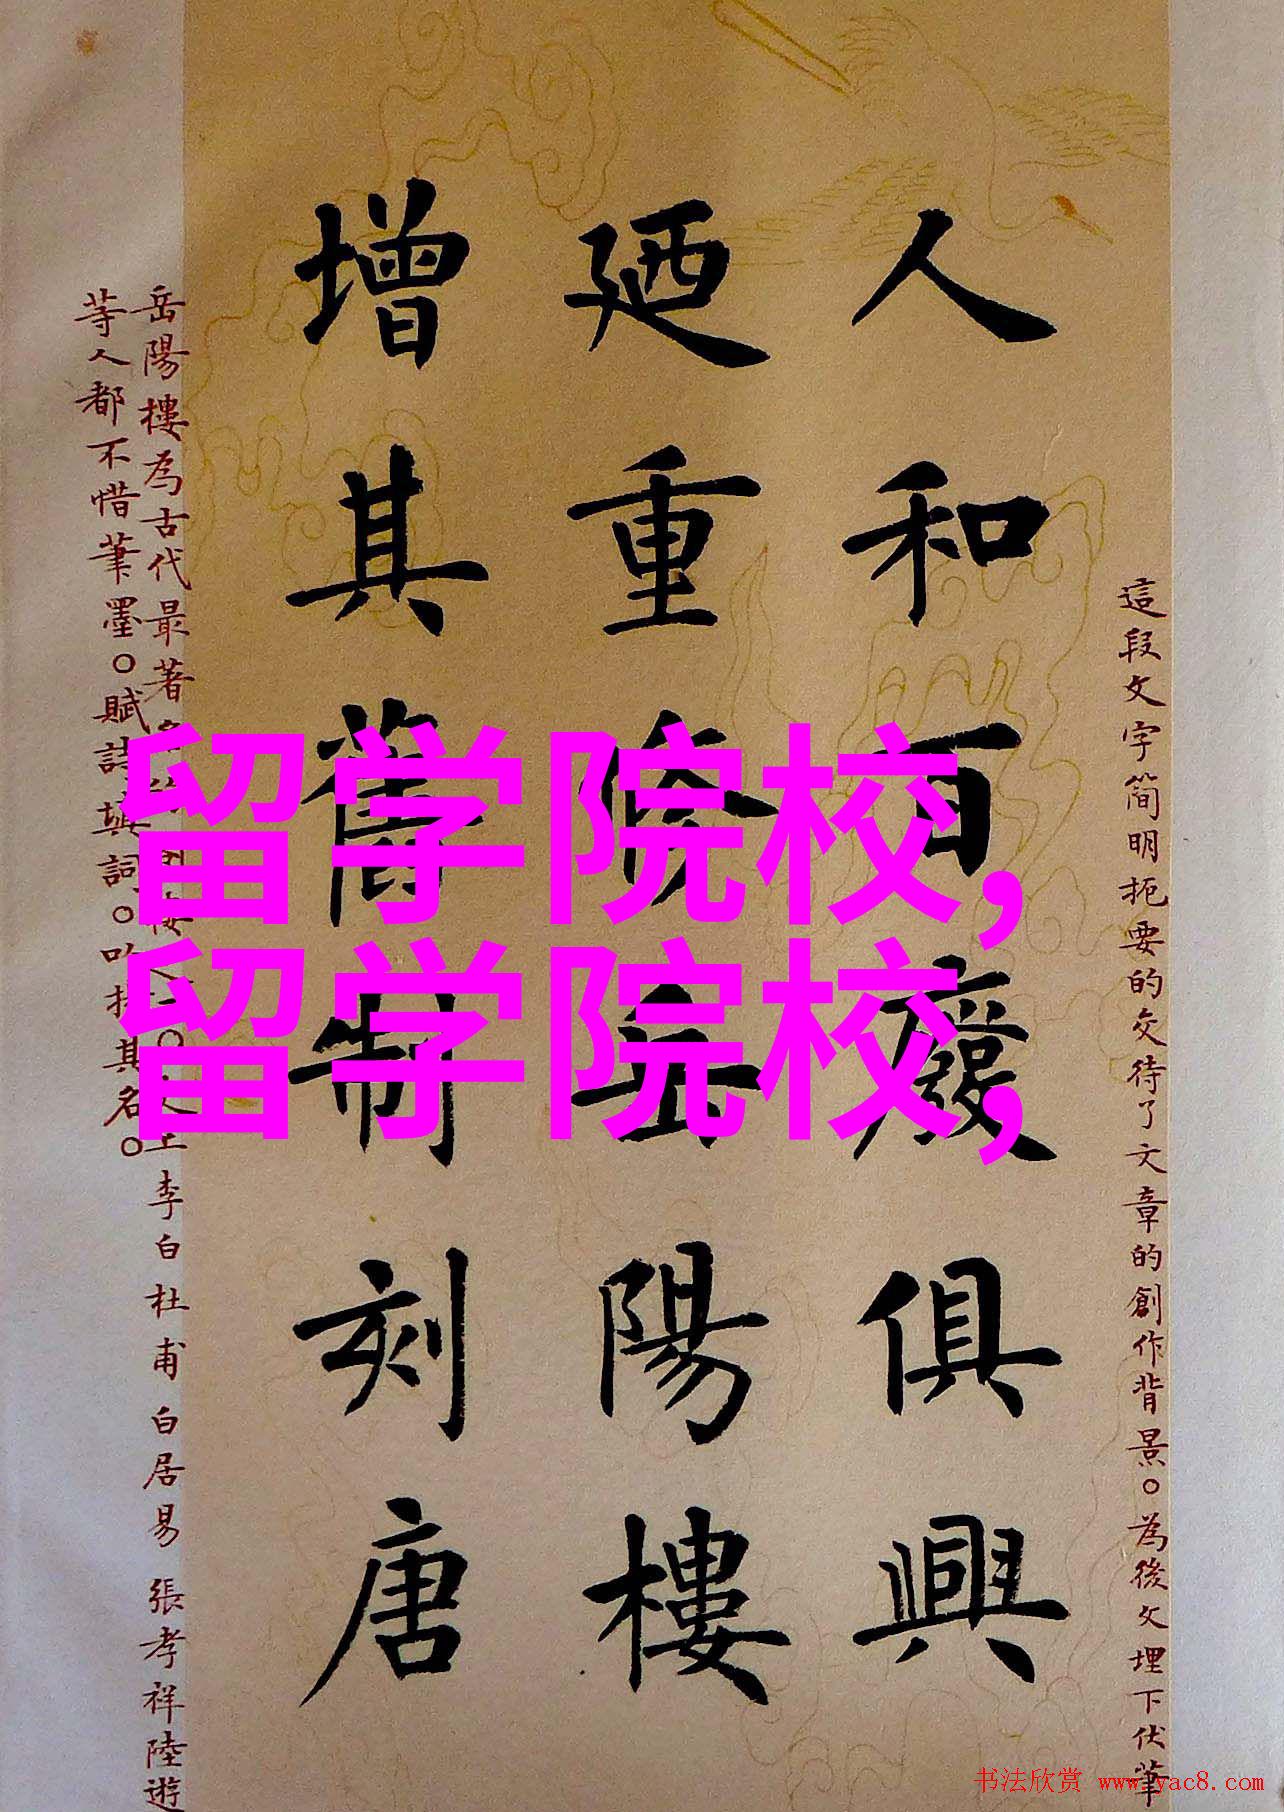 這段文字简明扼要的交待了文章的創作背景。為後文埋下伏筆
人和百廢俱興
廼重修岳陽樓
增其舊制刻唐
岳陽樓為古代最著李白杜甫白居易張孝祥陸遊
等人都不惜筆墨。賦詩填詞。其名。
留学院校,
留学院校,
书法欣赏 www.yac8.com